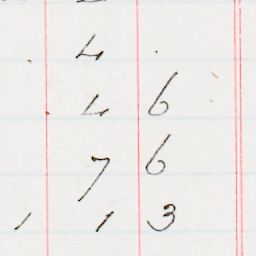 4 .
4 6
7 6
1 1 3